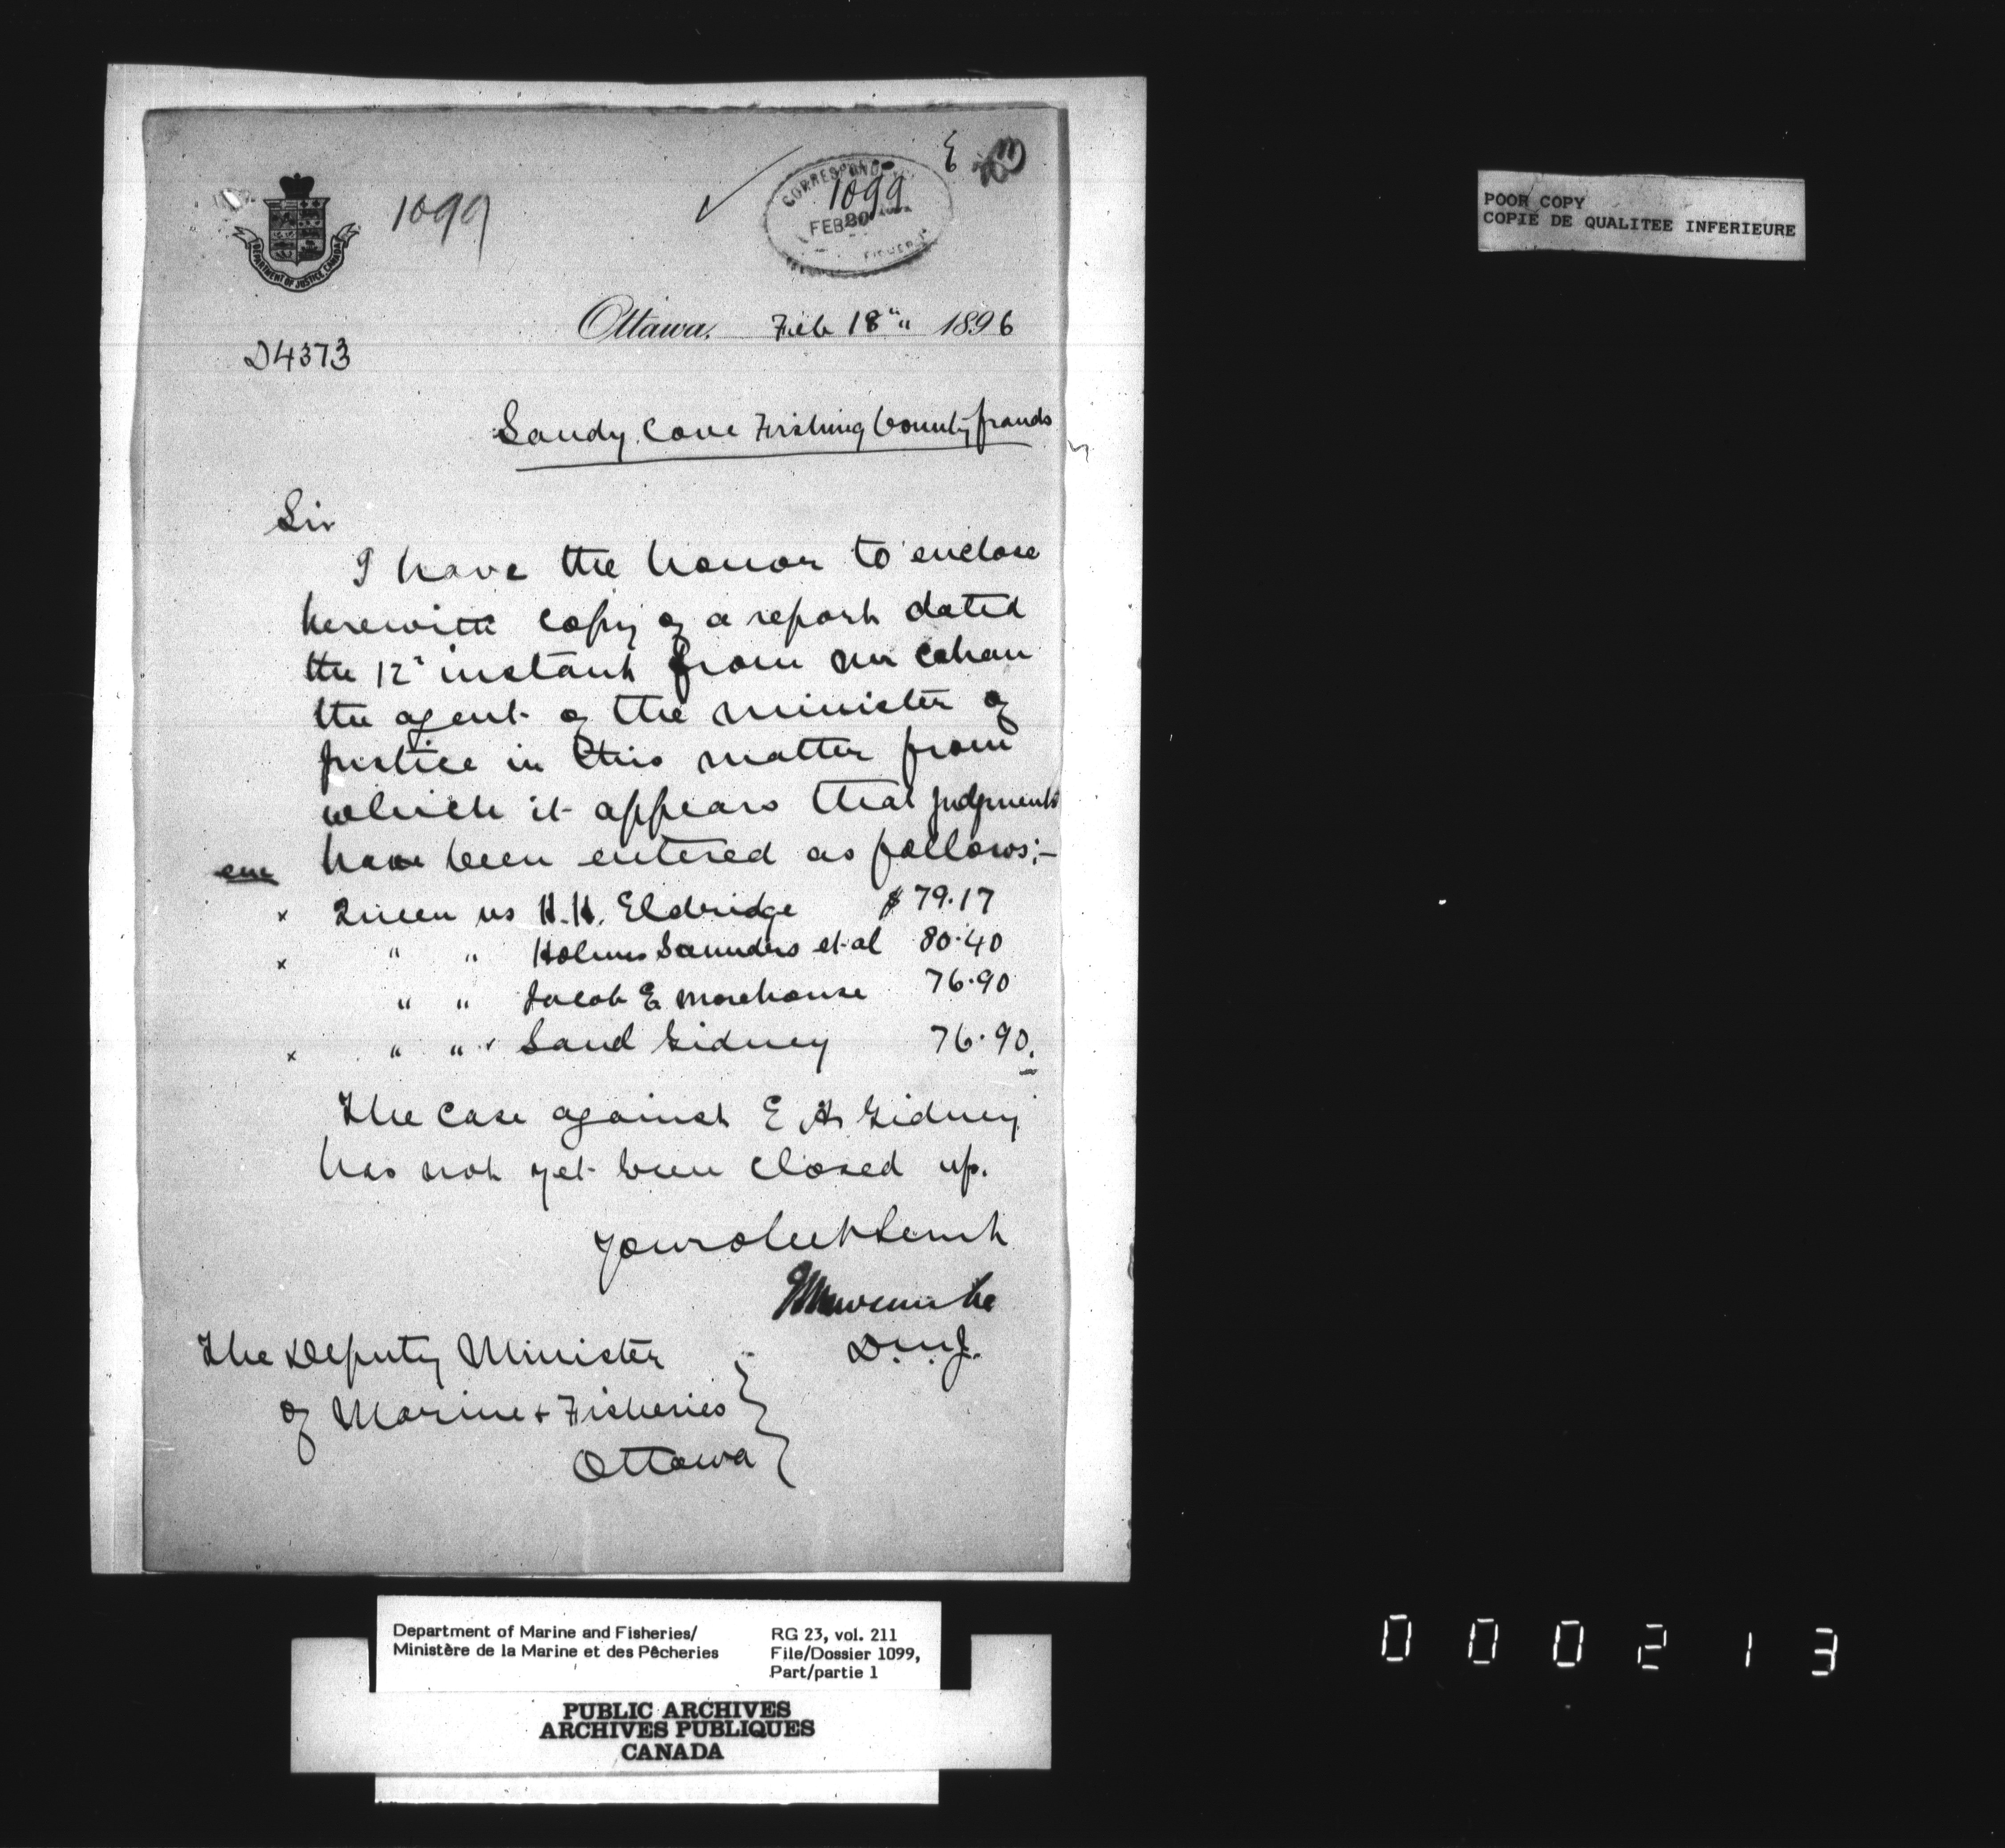 1099
1099
CORRESPOND
FEB 20
DEPARTMENT OF JUSTICE, CANADA
Ottawa, Feb 18" 1896
D4373
Sandy Cove Fishing bounty frauds
Sir
I have the honor to enclose
herewith copy of a report dated
the 12" instant from Mr Cahan
the agent of the minister of
Justice in this matter from
which it appears that judgments
have been entered as follows:-
enc
x Queen vs H.H. Eldridge $79.17
x " " Holmes Saunders et al 80.40
" " Jacob E Morehouse 76.90
x " " Sand Gidney 76.90.
The case against E H Gidney
has not yet been closed up.
Your obedt servt
Newcombe
D.M.J.
The Deputy Minister
of Marine & Fisheries
Ottawa
POOR COPY
COPIE DE QUALITEE INFERIEURE
Department of Marine and Fisheries/
Ministère de la Marine et des Pêcheries
RG 23, vol. 211
File/Dossier 1099,
Part/partie 1
PUBLIC ARCHIVES
ARCHIVES PUBLIQUES
CANADA
000213